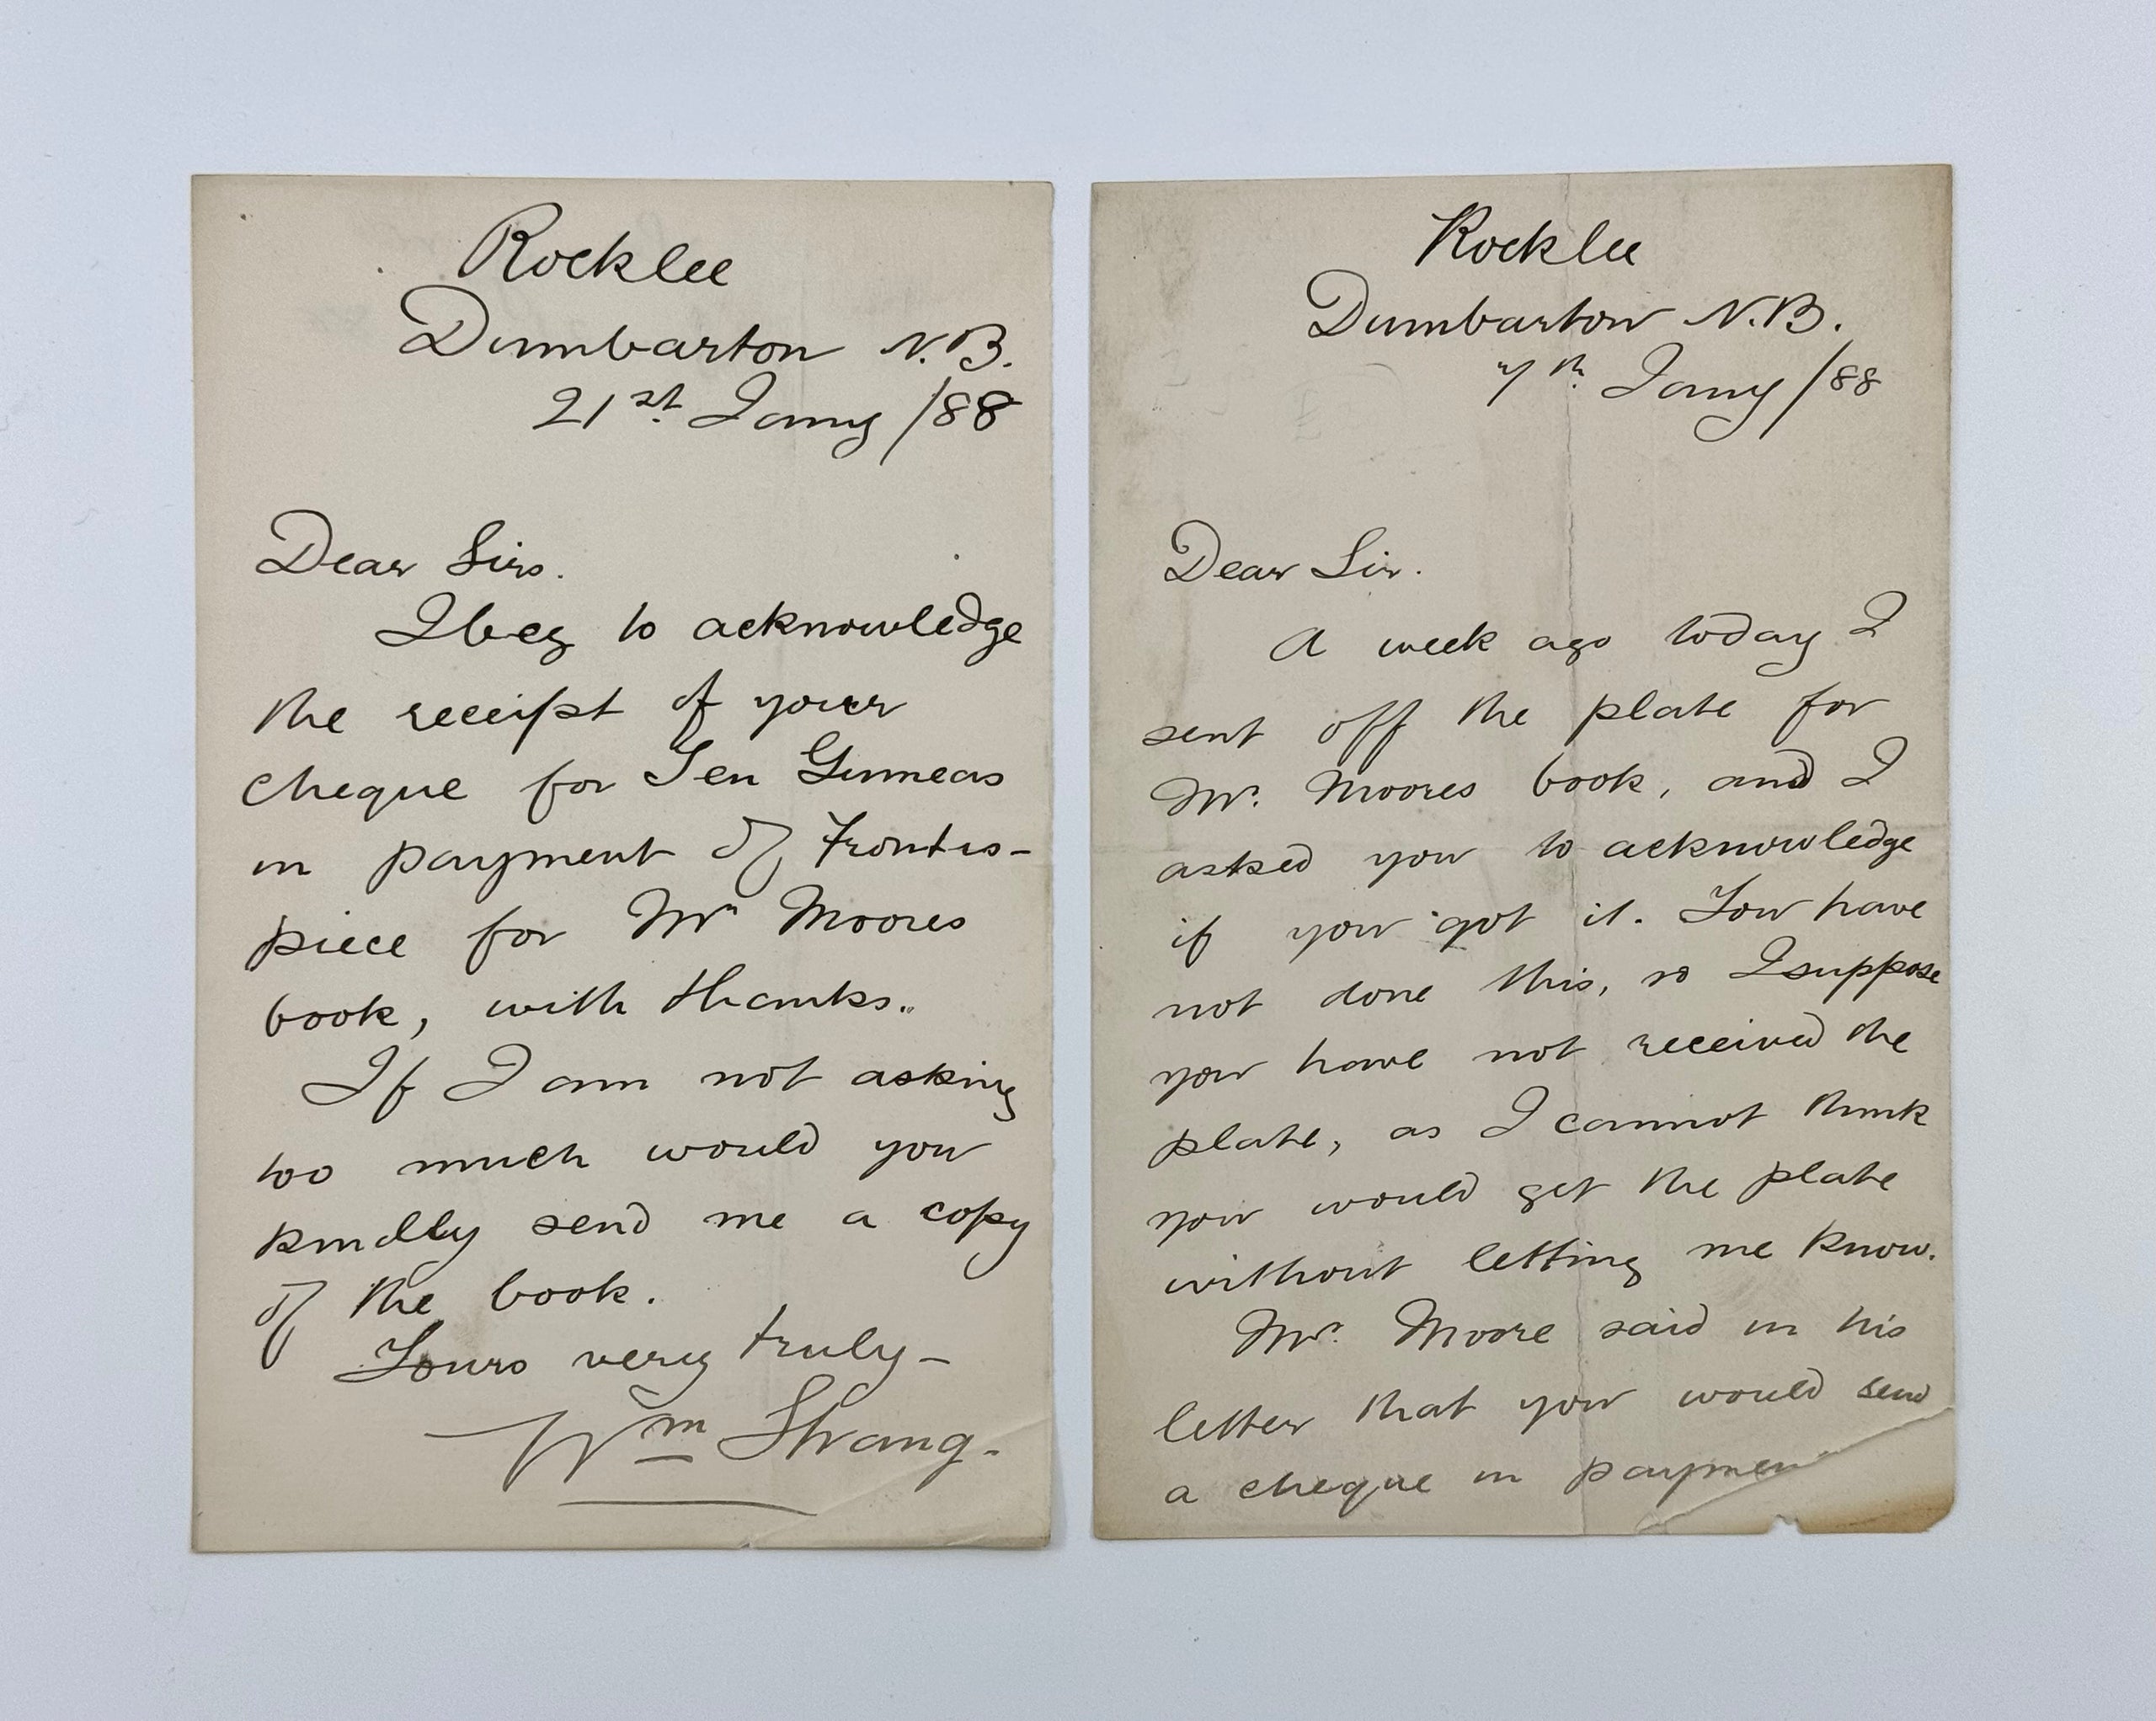 Rocklee
Dumbarton N.B.
21st. Jany /88
Dear Sirs.
I beg to acknowledge
the receipt of your
cheque for Ten Guineas
in payment of Frontis-
piece for Mr Moores
book, with thanks.
If I am not asking
too much would you
kindly send me a copy
of the book.
Yours very truly-
Wm Strang-
Rocklee
Dumbarton N.B.
7th. Jany /88
Dear Sir.
A week ago today I
sent off the plate for
Mr. Moores book, and I
asked you to acknowledge
if you got it. You have
not done this, so I suppose
you have not received the
plate, as I cannot think
you would get the plate
without letting me know.
Mr. Moore said in his
letter that you would send
a cheque in paymen